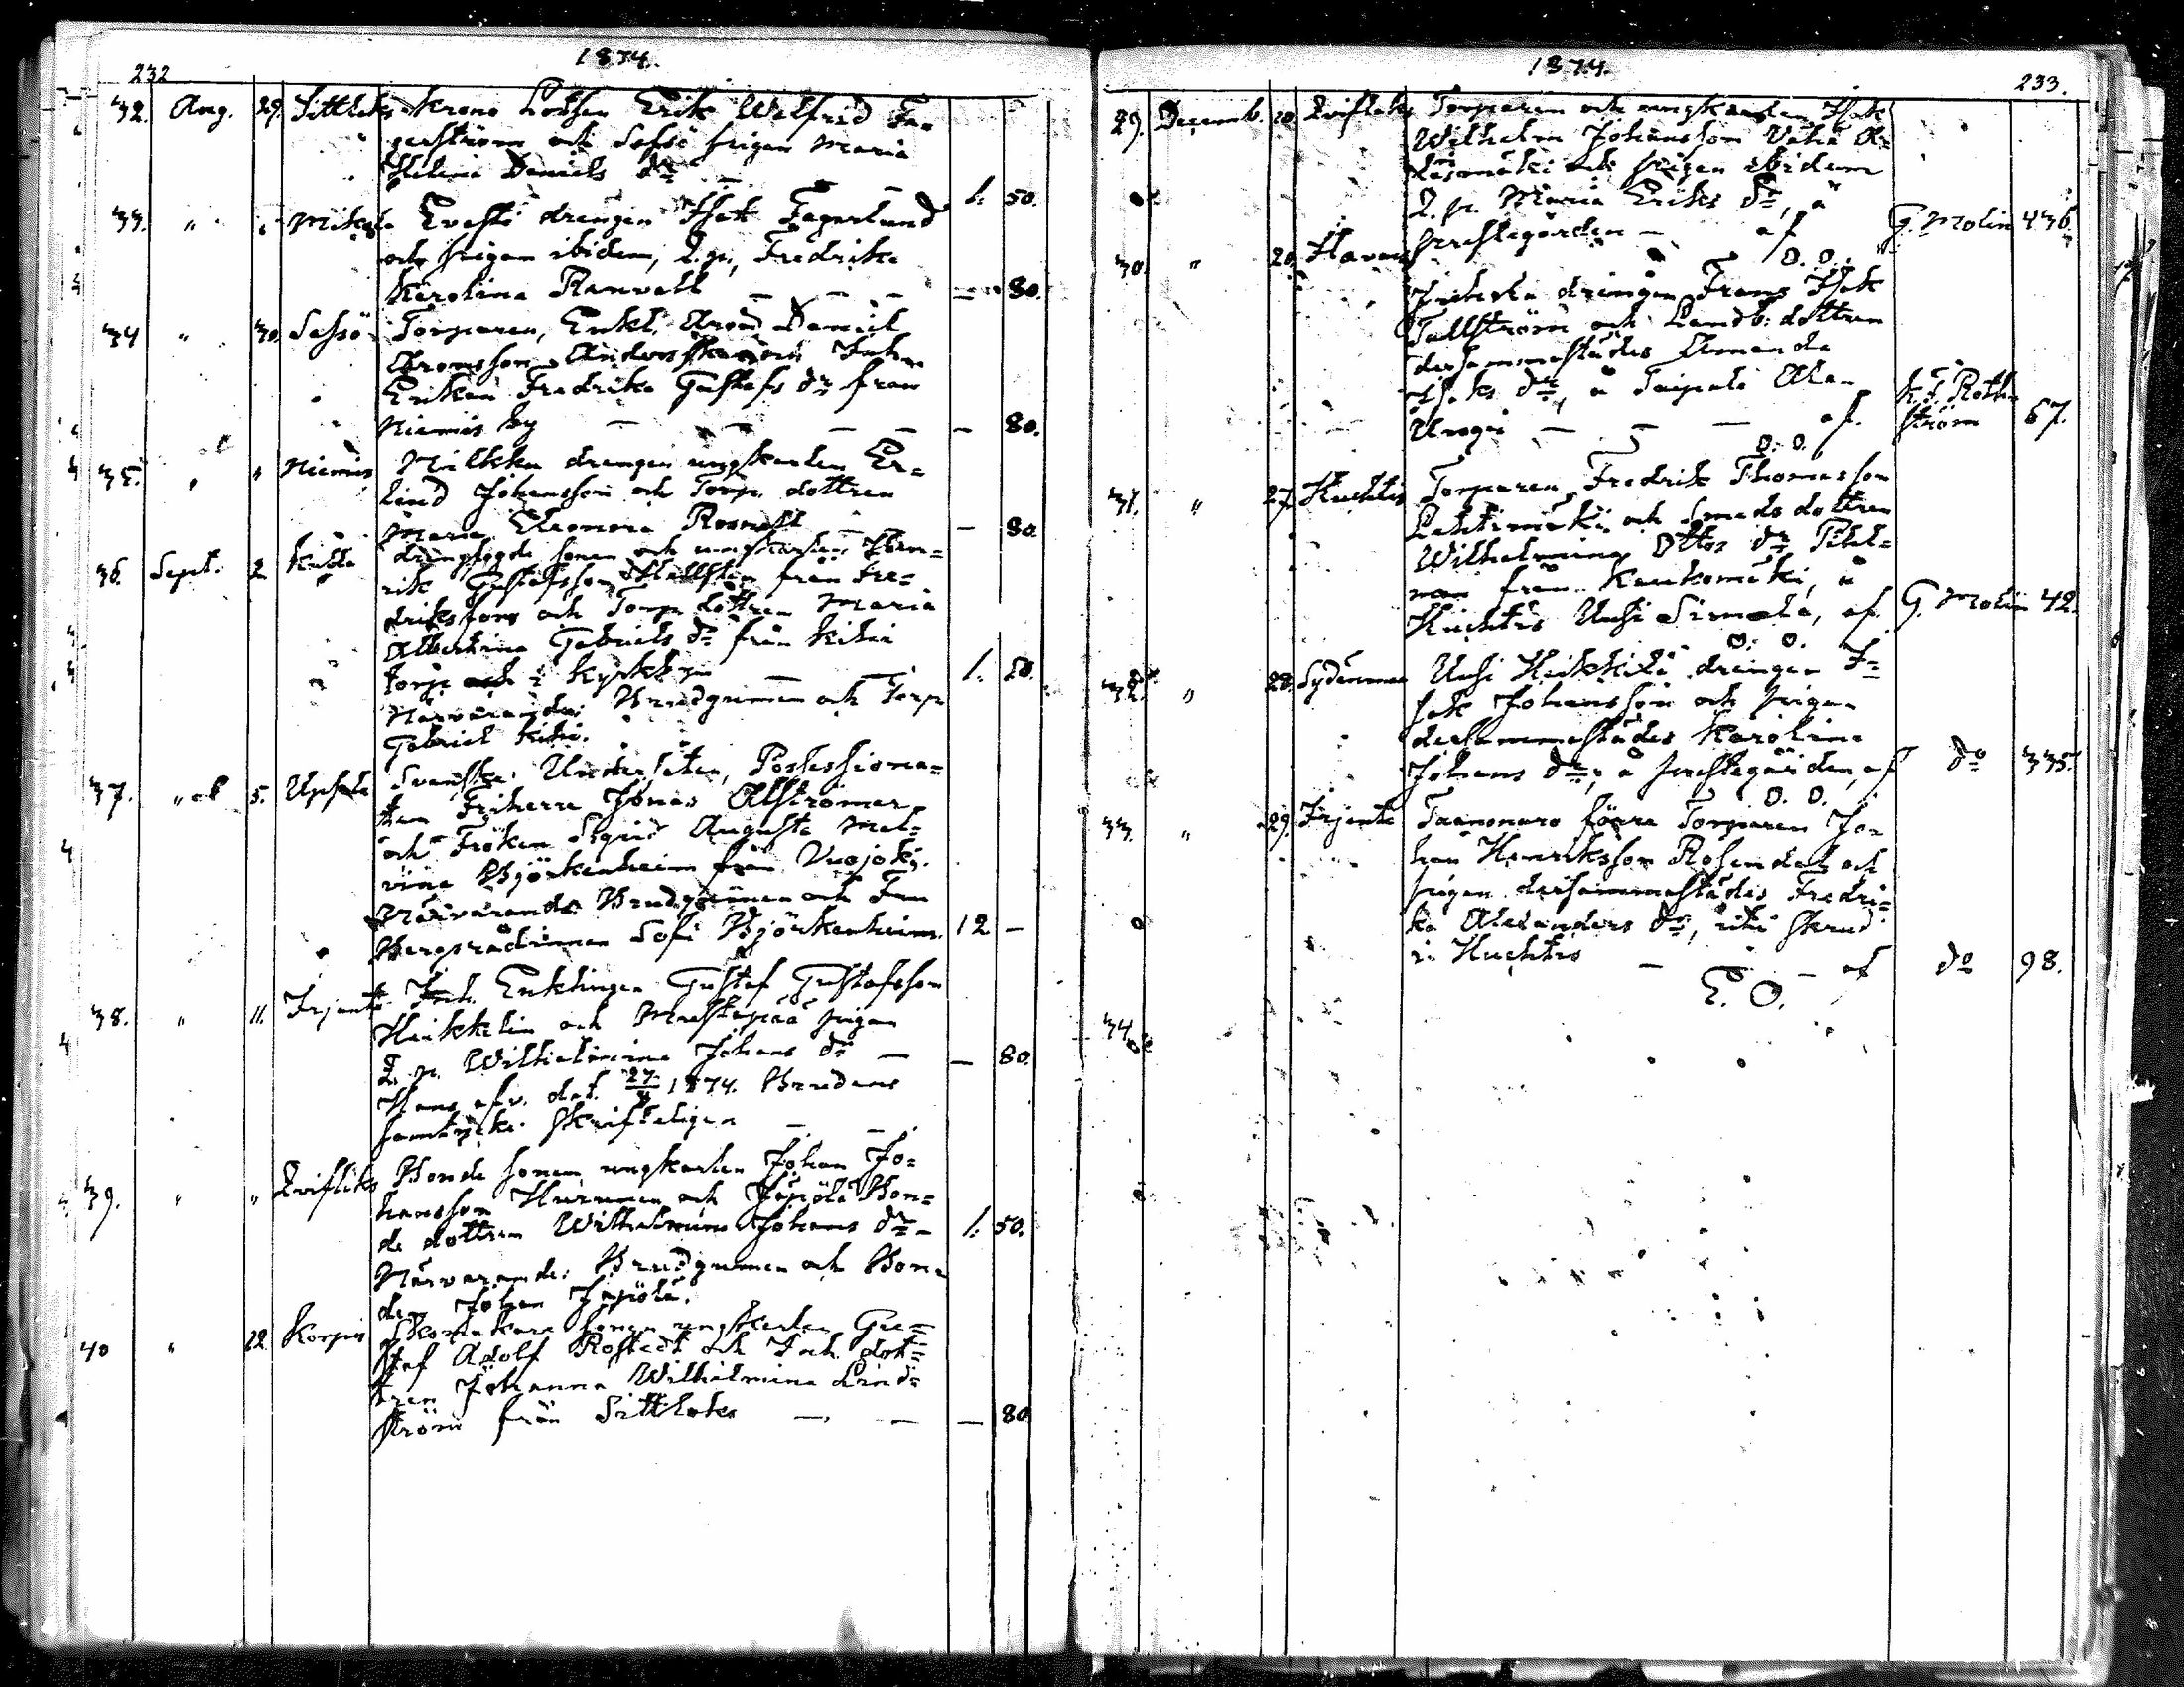 232
1874.
32. Aug. 29. Sittlaks Krono Lotsen Erik Wilfrid Fa=
gerström och Safsö pigan Maria
Helena Daniels dr — — 1. 50.
33. " " Mikola Evasti drengen Isak Fagerlund
och pigan ibidem, Q. p., Fredrika
Karolina Ranvall — — — — 80.
34 " 30. Safsö Torparen, Enkl. Aron Daniel
Aronsson Inh.
Enkan Fredrika Gustafs dr från
Niemis by — — — — — 80.
35. " " Niemis Milkku drengen ungkarlen Er=
land Johansson och Torp. dottren
Maria Eleonora Rosnell — — 80.
36. Sept. 2 sonen och ungkarlen Hen=
rik Gustafsson Hellsten från Fre=
driksfors och Torp. dottren Maria
Albertina Gabriels dr från Kihi
torp i Kyrkbyn — — 1. 50.
Närvarande: Brudgumen och Torp.
Gabriel Kihi.
37. " 5. Svenska Undersåten, Possessiona=
ten Friherre Jonas Alströmer
och Fröken Sigrid Augusta Mal=
vina Björkenheim från Vuojoki.
Närvarande: Brudgumen och Fru
Bergsrådinnan Sofi Björkenheim. 12 —
38. " 11. Irjanto Inh. Enklingen Gustaf Gustafsson
Heikkelin och pigan
Q. p. Wilhelmina Johans dr — — 80.
Hans afv. dat. 27 1874. Brudens
samtycke skrifteligen — —
39. " " Qvifliks Bonde sonen ungkarlen Johan Jo=
hansson Hurumen och Jopöla Bon=
de dottren Wilhelmina Johans dr — 1. 50.
Närvarande: Brudgumen och Bon=
den Johan Jopöla.
40 " 12. Korpis Skomakare sonen ungkarlen Gu=
staf Adolf Rostedt och Inh. dot=
tren Johanna Wilhelmina Lind=
ström från Sittlaks — — — 80
1874.
233.
29. Decemb. 20. Qvifliks Torparen och ungkarlen Isak
Wilhelm Johansson Vähä
och pigan ibidem
Q. p. Maria Eriks dr, å
prestegården — af G. Molin 436.
O. O.
30. " 26. drengen Frans Isak
Tallström och Landb: dottren
dersammastädes Amanda
Isaks dr, å Taipale Ala=
Uusgri — — — af K. F. Roth=
ström 67.
O. O.
31. " 27. Kuchtis Torparen Fredrik Thomasson
Lehtimäki och Smeds dottren
Wilhelmina Ottos dr Pihl=
man från Kaukomäki, å
Kuchtis Uusi Simola, af G. Molin 42.
O. O.
32. " 28. Sydänmaa Uusi Heikkilä drengen I=
sak Johansson och pigan
dersammastädes Karolina
Johans dr, å prestegården, af do 335.
O. O.
33. " 29. Irjanto Taanonaro förra Torparen Jo=
han Henriksson Rosendal och
pigan dersammastädes Fredri=
ka Alexanders dr, i
i Kuchtis — — — af do 98.
E. O.
34